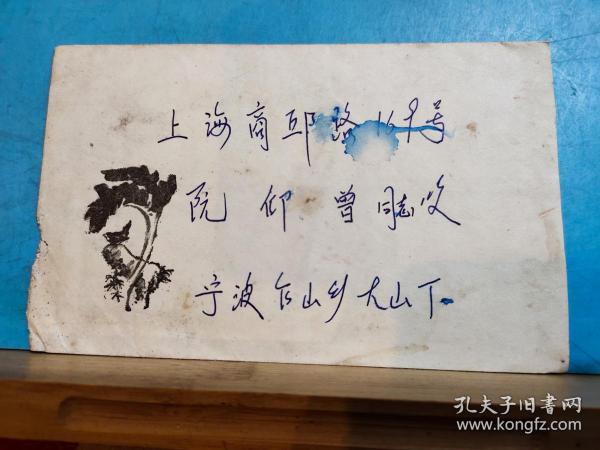 上海商邱路169号
阮仰曾同志收
宁波 山乡大山下
孔夫子旧書网
www.kongfz.com